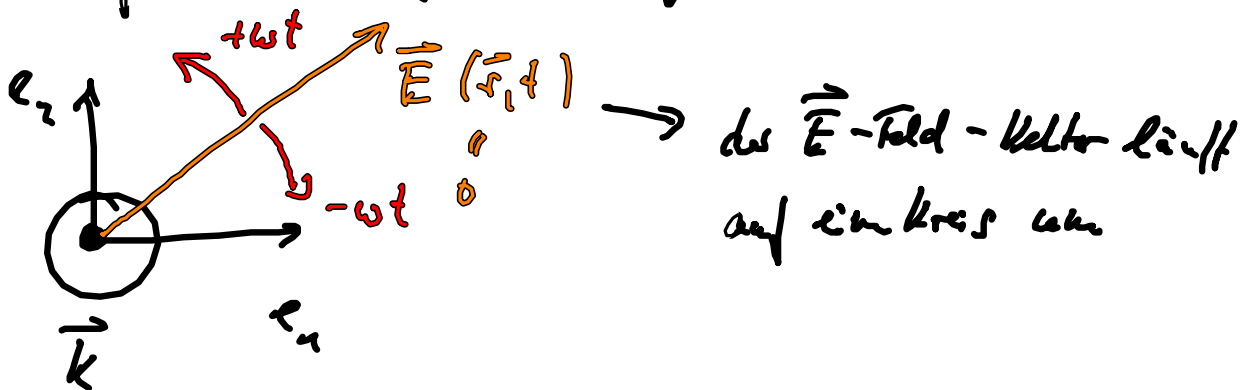 +ωt
e₂
E⃗ (r⃗, t)
"
0
-ωt
der E⃗-Feld-Vektor läuft
auf einem Kreis um
e₁
k⃗